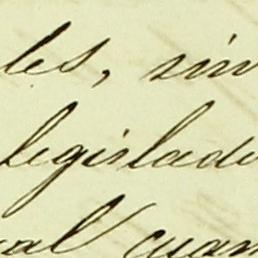 les, sin
legislado
ual cuan